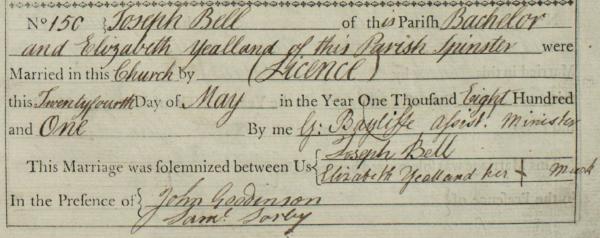 No 150 Joseph Bell of this Parish Bachelor
and Elizabeth Yealland of this Parish Spinster were
Married in this Church by (Licence)
this Twenty fourth Day of May in the Year One Thousand Eight Hundred
and One By me G: Bayliffe Assist. Minister
This Marriage was solemnized between Us Joseph Bell
Elizabeth Yealland her + Mark
In the Presence of John Goodinson
Saml. Sorby